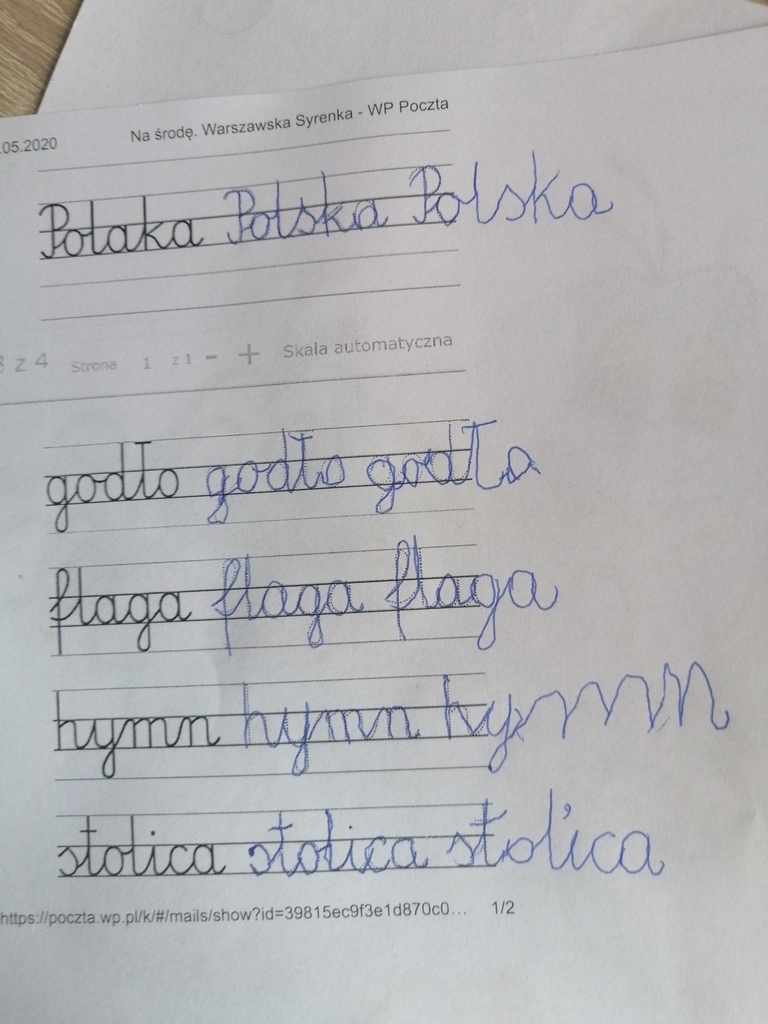 .05.2020 Na środę. Warszawska Syrenka - WP Poczta
Polaka Polska Polska
3 z 4 Strona 1 z 1 - + Skala automatyczna
godło godło godła
flaga flaga flaga
hymn hymn hymn
stolica stolica stolica
https://poczta.wp.pl/k/#/mails/show?id=39815ec9f3e1d870c0... 1/2